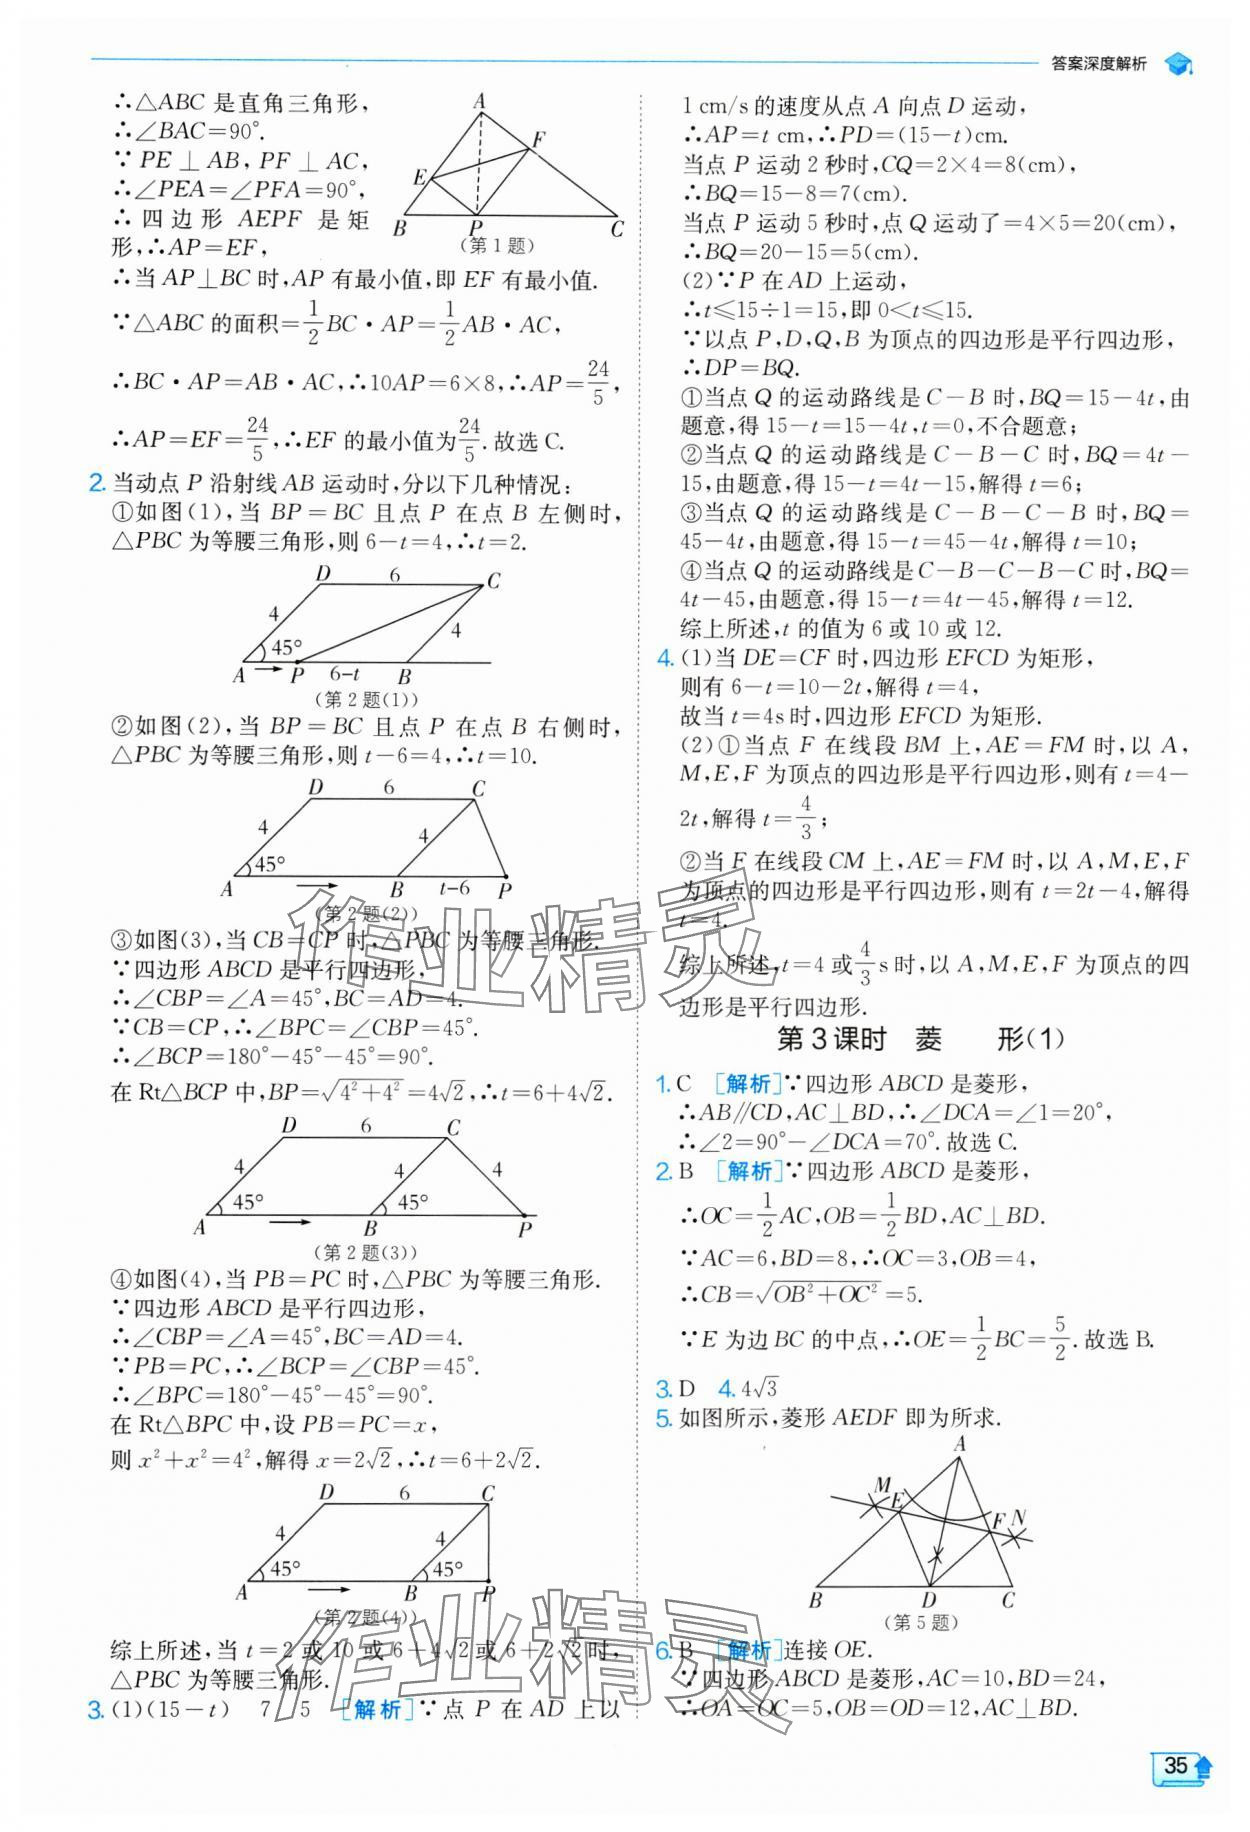 答案深度解析
∴△ABC 是直角三角形,
∴∠BAC=90°.
∵ PE ⊥ AB, PF ⊥ AC,
∴∠PEA=∠PFA=90°,
∴ 四边形 AEPF 是矩
形,∴AP=EF,
A
F
E
B
P
C
(第 1 题)
∴当 AP⊥BC 时,AP 有最小值,即 EF 有最小值.
∵△ABC 的面积=1/2BC·AP=1/2AB·AC,
∴BC·AP=AB·AC,∴10AP=6×8,∴AP=24/5,
∴AP=EF=24/5,∴EF 的最小值为24/5.故选C.
2. 当动点 P 沿射线 AB 运动时,分以下几种情况:
①如图(1),当 BP=BC 且点 P 在点 B 左侧时,
△PBC 为等腰三角形,则 6-t=4,∴t=2.
D 6 C
4 4
45°
A P 6-t B
(第 2 题(1))
②如图(2),当 BP=BC 且点 P 在点 B 右侧时,
△PBC 为等腰三角形,则 t-6=4,∴t=10.
D 6 C
4 4
45°
A B t-6 P
(第 2 题(2))
③如图(3),当 CB=CP 时,△PBC 为等腰三角形.
∵四边形 ABCD 是平行四边形,
∴∠CBP=∠A=45°,BC=AD=4.
∵CB=CP,∴∠BPC=∠CBP=45°.
∴∠BCP=180°-45°-45°=90°.
在 Rt△BCP 中,BP=√(4²+4²)=4√2,∴t=6+4√2.
D 6 C
4 4 4
45° 45°
A B P
(第 2 题(3))
④如图(4),当 PB=PC 时,△PBC 为等腰三角形.
∵四边形 ABCD 是平行四边形,
∴∠CBP=∠A=45°,BC=AD=4.
∵PB=PC,∴∠BCP=∠CBP=45°.
∴∠BPC=180°-45°-45°=90°.
在 Rt△BPC 中,设 PB=PC=x,
则 x²+x²=4²,解得 x=2√2,∴t=6+2√2.
D 6 C
4 4
45° 45°
A B P
(第 2 题(4))
综上所述,当 t=2 或 10 或 6+4√2或 6+2√2时,
△PBC 为等腰三角形.
3. (1)(15-t) 7 5 [解析]∵点 P 在 AD 上以
1 cm/s 的速度从点 A 向点 D 运动,
∴AP=t cm,∴PD=(15-t)cm.
当点 P 运动 2 秒时,CQ=2×4=8(cm),
∴BQ=15-8=7(cm).
当点 P 运动 5 秒时,点 Q 运动了=4×5=20(cm),
∴BQ=20-15=5(cm).
(2)∵P 在 AD 上运动,
∴t≤15÷1=15,即 0<t≤15.
∵以点 P,D,Q,B 为顶点的四边形是平行四边形,
∴DP=BQ.
①当点 Q 的运动路线是 C-B 时,BQ=15-4t,由
题意,得 15-t=15-4t,t=0,不合题意;
②当点 Q 的运动路线是 C-B-C 时,BQ=4t-
15,由题意,得 15-t=4t-15,解得 t=6;
③当点 Q 的运动路线是 C-B-C-B 时,BQ=
45-4t,由题意,得 15-t=45-4t,解得 t=10;
④当点 Q 的运动路线是 C-B-C-B-C 时,BQ=
4t-45,由题意,得 15-t=4t-45,解得 t=12.
综上所述,t 的值为 6 或 10 或 12.
4. (1)当 DE=CF 时,四边形 EFCD 为矩形,
则有 6-t=10-2t,解得 t=4,
故当 t=4s时,四边形 EFCD 为矩形.
(2)①当点 F 在线段 BM 上,AE=FM 时,以 A,
M,E,F 为顶点的四边形是平行四边形,则有 t=4-
2t,解得 t=4/3;
②当 F 在线段 CM 上,AE=FM 时,以 A,M,E,F
为顶点的四边形是平行四边形,则有 t=2t-4,解得
t=4.
综上所述,t=4 或4/3s时,以 A,M,E,F 为顶点的四
边形是平行四边形.
第 3 课时 菱 形(1)
1. C [解析]∵四边形 ABCD 是菱形,
∴AB∥CD,AC⊥BD,∴∠DCA=∠1=20°,
∴∠2=90°-∠DCA=70°.故选 C.
2. B [解析]∵四边形 ABCD 是菱形,
∴OC=1/2AC,OB=1/2BD,AC⊥BD.
∵AC=6,BD=8,∴OC=3,OB=4,
∴CB=√(OB²+OC²)=5.
∵E 为边 BC 的中点,∴OE=1/2BC=5/2.故选 B.
3. D 4. 4√3
5. 如图所示,菱形 AEDF 即为所求.
A
M E
F N
B D C
(第 5 题)
6. B [解析]连接 OE.
∵四边形 ABCD 是菱形,AC=10,BD=24,
∴OA=OC=5,OB=OD=12,AC⊥BD.
35
作业精灵
作业精灵